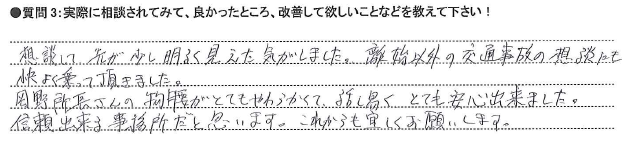 ●質問3:実際に相談されてみて、良かったところ、改善して欲しいことなどを教えて下さい！
相談して先が少し明るく見えた気がしました。離婚以外の交通事故の相談にも
快よく乗って頂きました。
岡野所長さんの物腰がとてもやわらかくて、話し易く とても安心出来ました。
信頼出来る事務所だと思います。これからも宜しくお願いします。